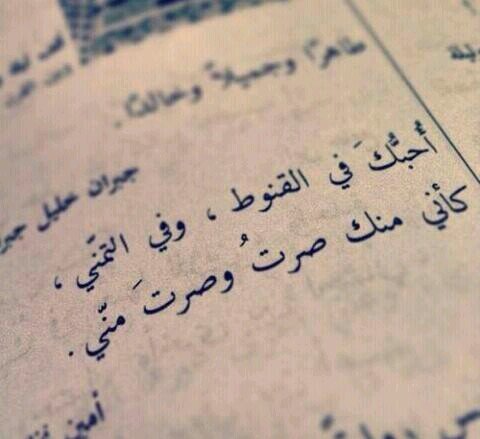 طاهرًا وجميلاً وخالدًا.
جبران خليل
أُحبُّكَ في القنوط ، وفي التمنّي ،
كأني منك صرتُ وصرتَ منّي .
أمين